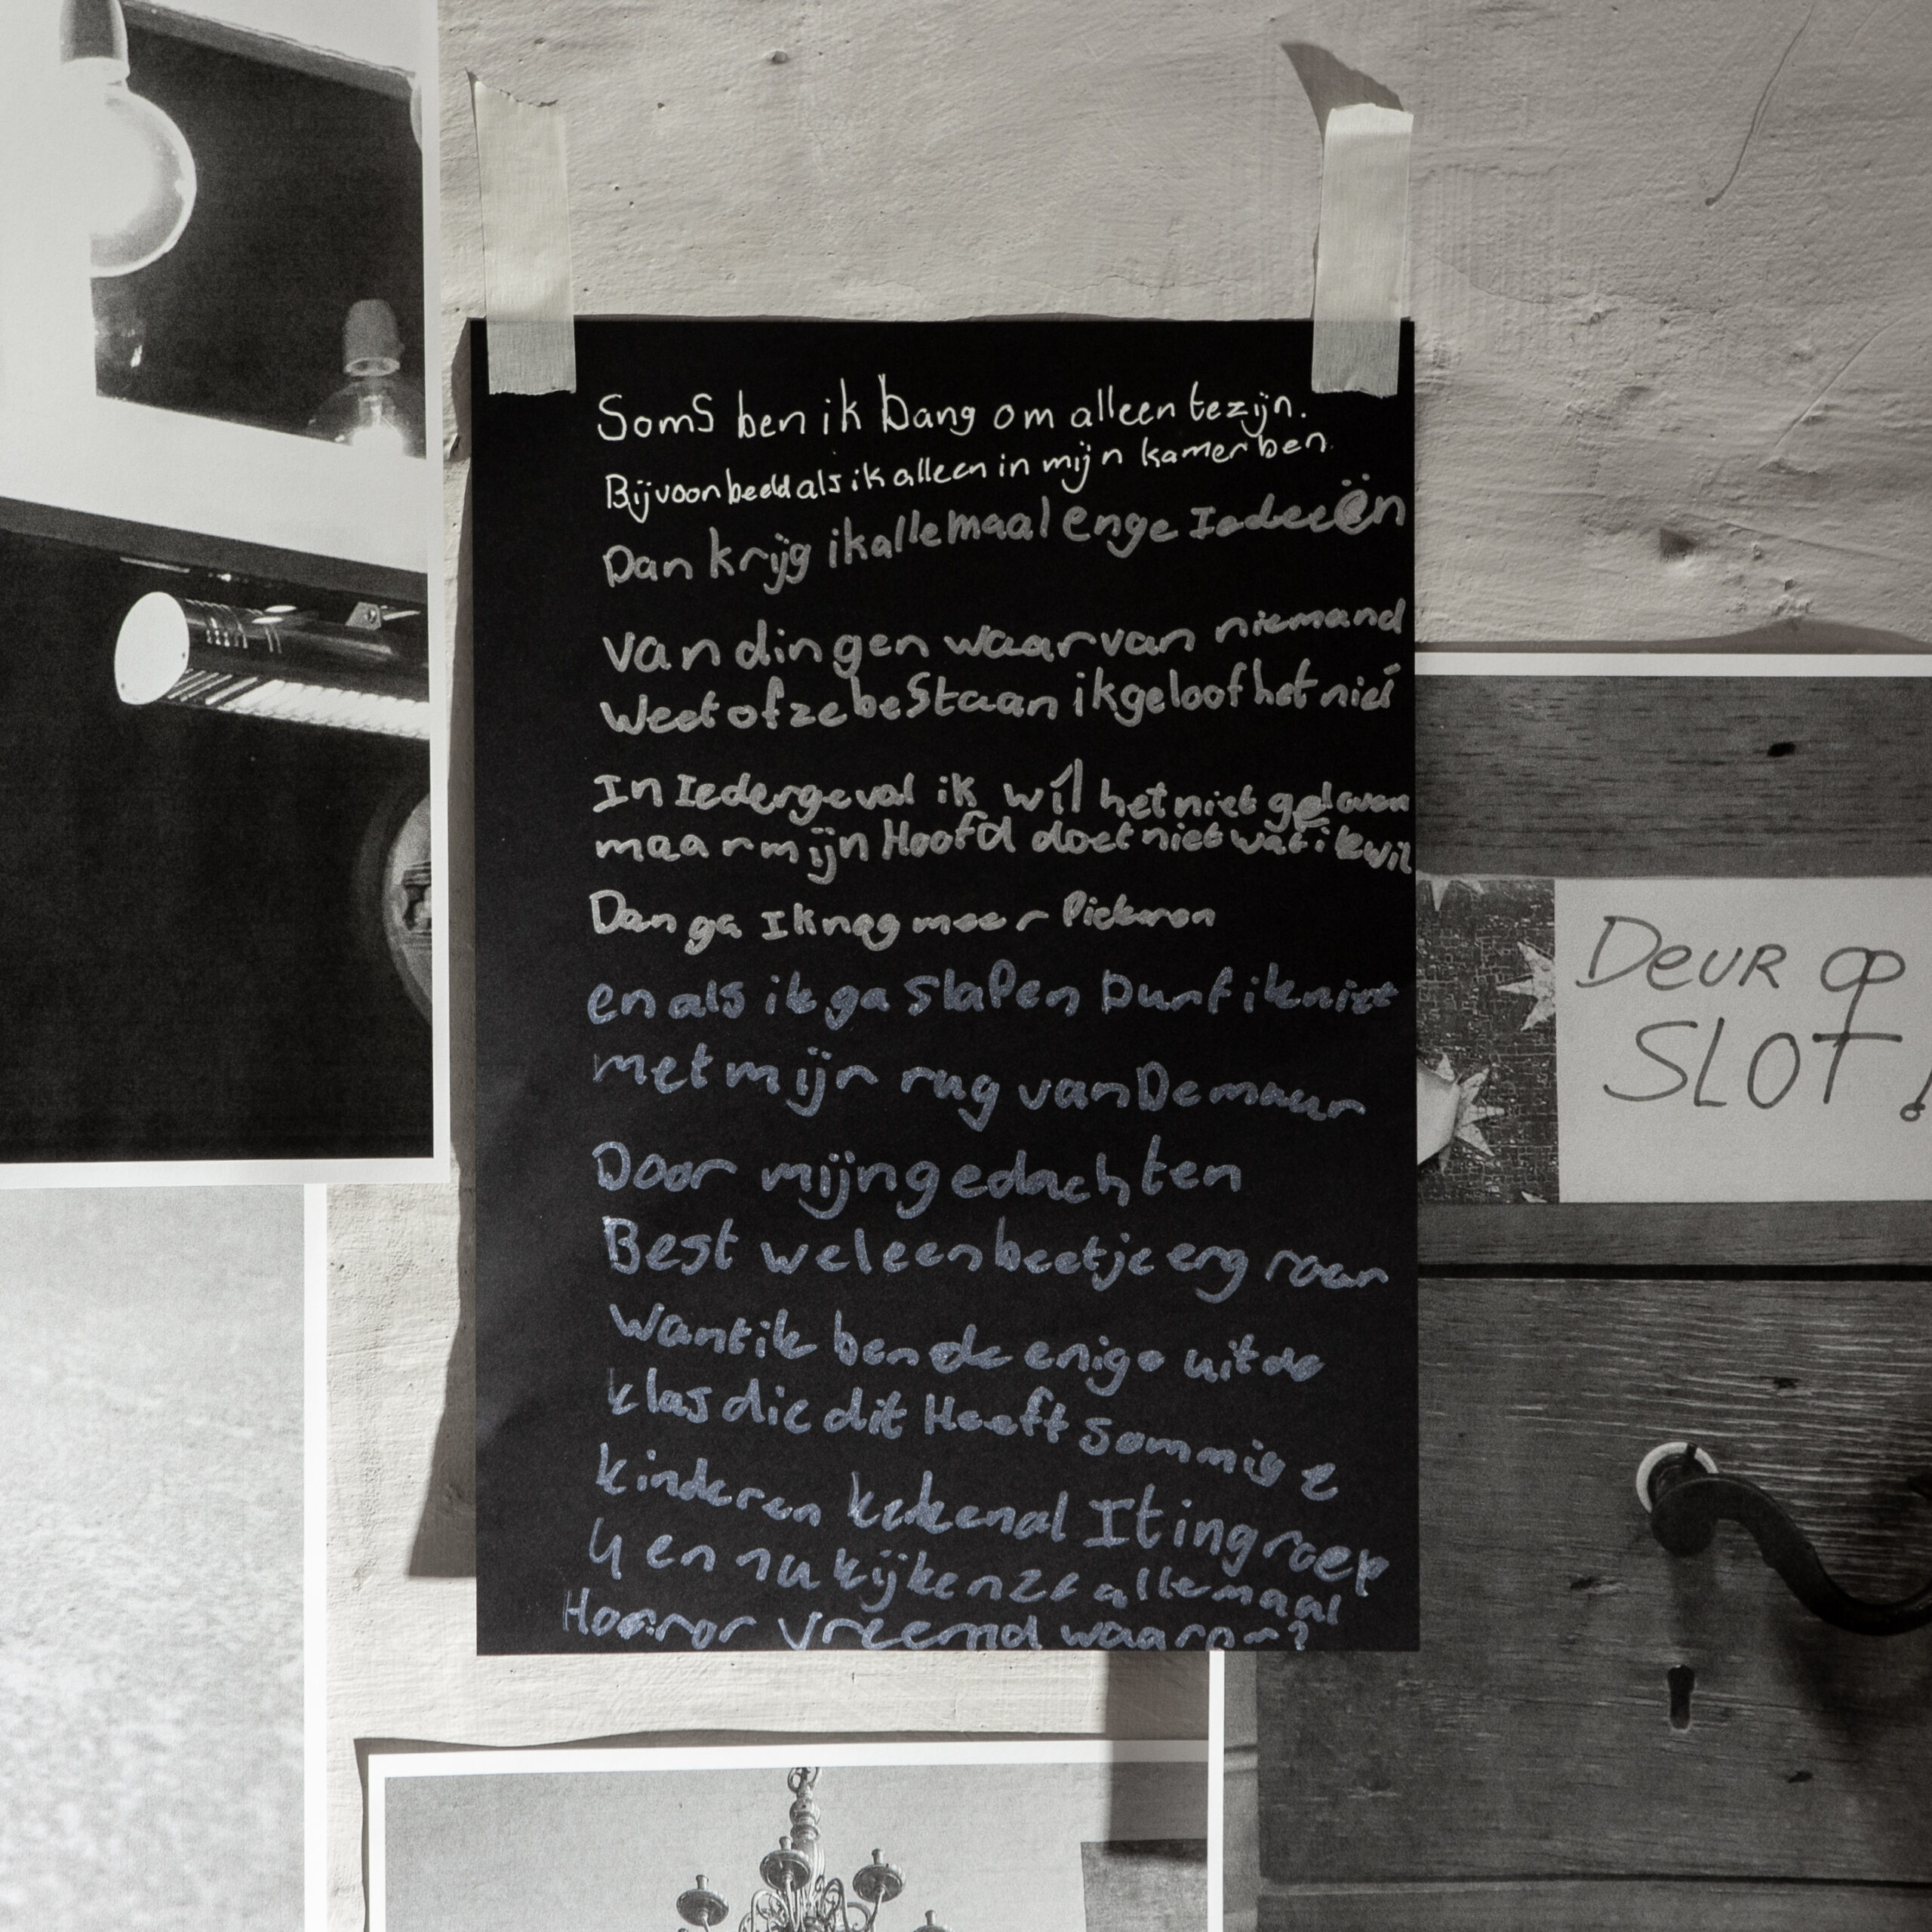 Soms ben ik bang om alleen te zijn.
Bijvoorbeeld als ik alleen in mijn kamer ben.
Dan krijg ik allemaal enge Iedeeën
van dingen waarvan niemand
weet of ze bestaan ik geloof het niet
In Iedergeval ik wil het niet geloven
maar mijn Hoofd doet niet wat ik wil
Dan ga Ik nog meer Piekeren
en als ik ga slapen Durf ik niet
met mijn rug van De muur
Door mijn gedachten
Best wel een beetje erg raar
want ik ben de enige uit de
klas die dit Heeft sommige
kinderen keken al It in groep
4 en nu kijken ze allemaal
Horror vreemd waarom?
DEUR OP
SLOT!